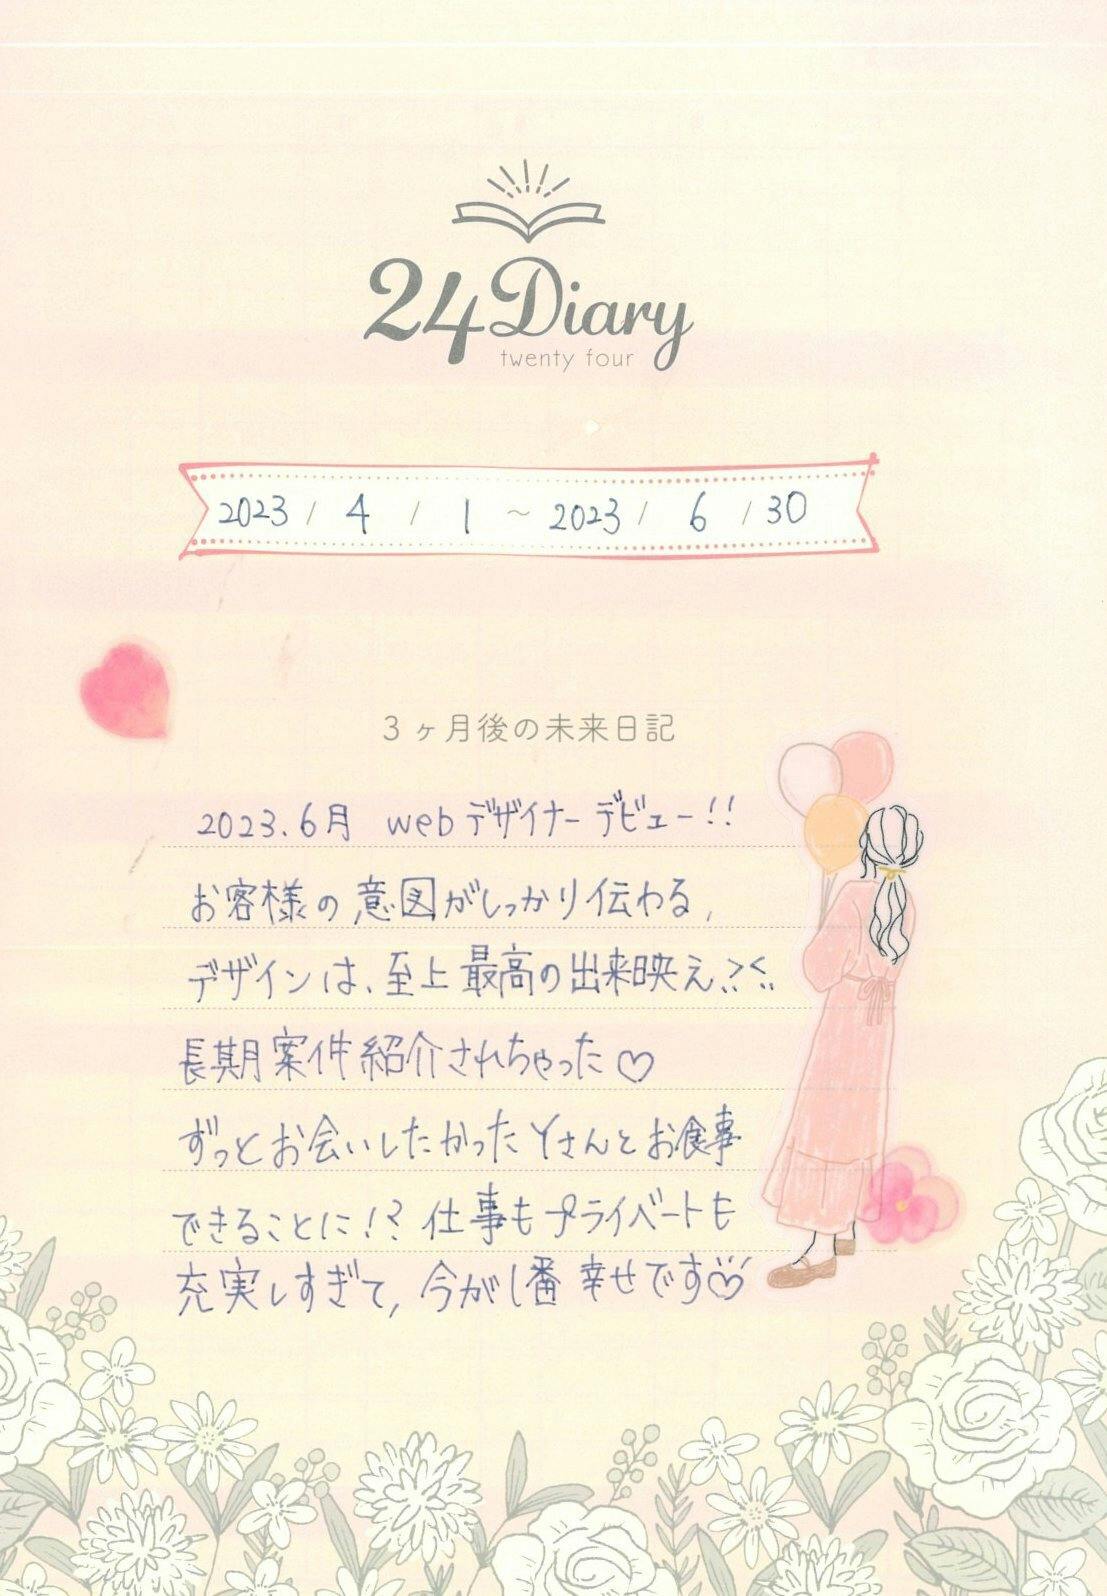 24 Diary
twenty four
2023 / 4 / 1 ~ 2023 / 6 / 30
3ヶ月後の未来日記
2023.6月 webデザイナーデビュー!!
お客様の意図がしっかり伝わる,
デザインは、至上最高の出来映え>̤<̤
長期案件紹介されちゃった♡
ずっとお会いしたかったYさんとお食事
できることに!? 仕事もプライベートも
充実しすぎて, 今が1番幸せです♡